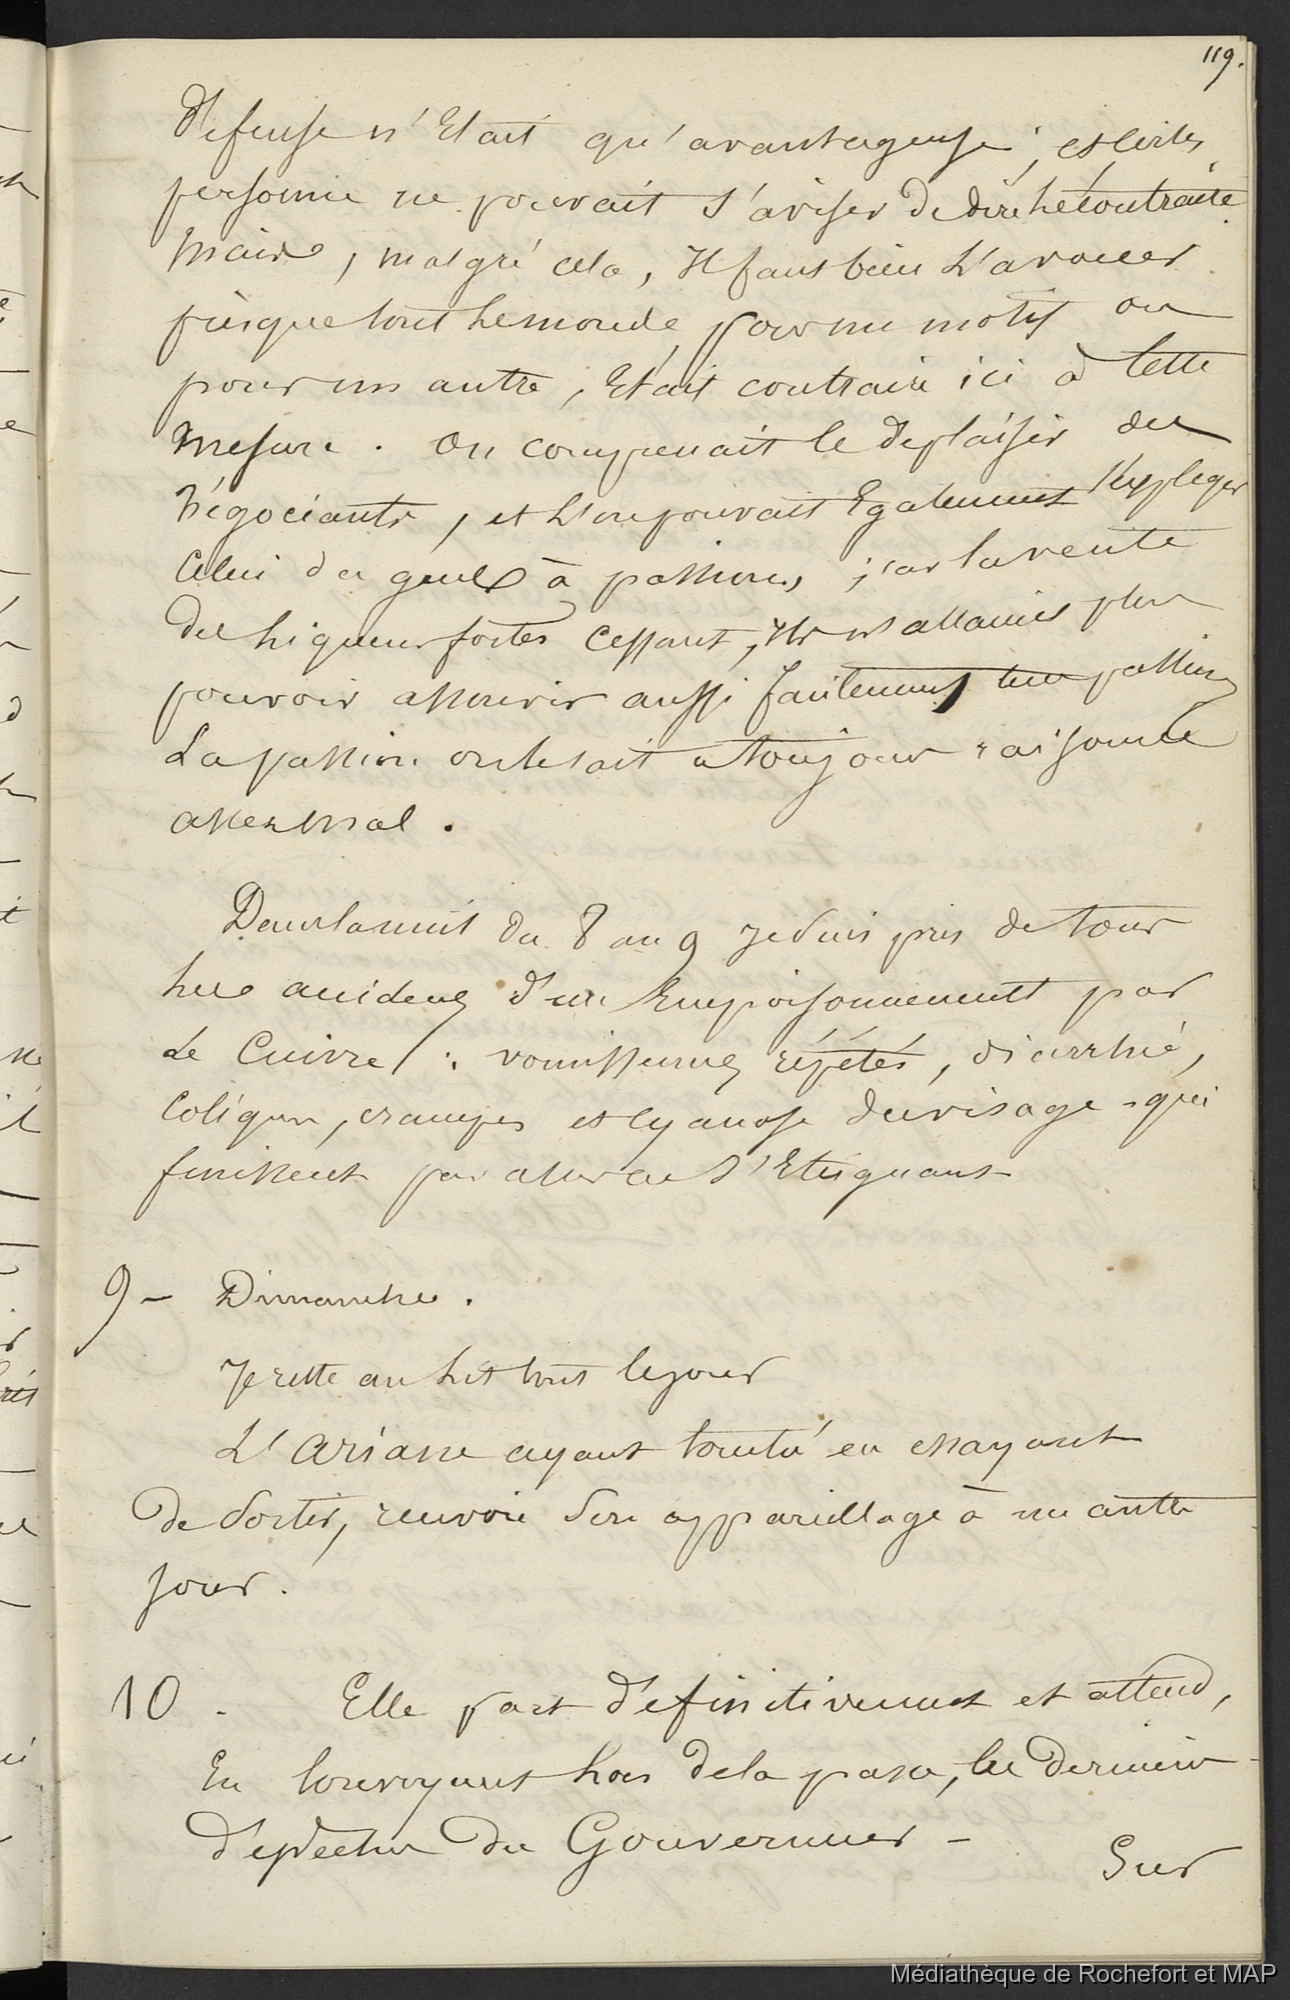 119.
défense n'était qu'avantageuse ; et certes
personne ne pouvait s'aviser de dire le contraire
Mais, malgré cela, il faut bien l'avouer
presque tout le monde, pour un motif ou
pour un autre, était contraire ici à cette
mesure. On comprenait le déplaisir des
négociants, et l'on pouvait également expliquer
celui des gens à passions, car la vente
des liqueurs fortes cessant, ils n'allaient plus
pouvoir assouvir aussi facilement leur passion
La passion on le sait a toujours raisonné
assez mal.
Dans la nuit du 8 au 9 je suis pris de tous
les accidens d'un empoisonnement par
le cuivre : vomissemens répétés, diarrhée,
coliques, crampes et cyanose du visage - qui
finissent par
9 - Dimanche.
Je reste au lit tout le jour
L'Ariane ayant touché en essayant
de sortir, renvoie son appareillage à un autre
jour.
10 - Elle part définitivement et attend,
en louvoyant hors de la passe, les dernières
dépêches du Gouverneur -
Sur
Médiathèque de Rochefort et MAP